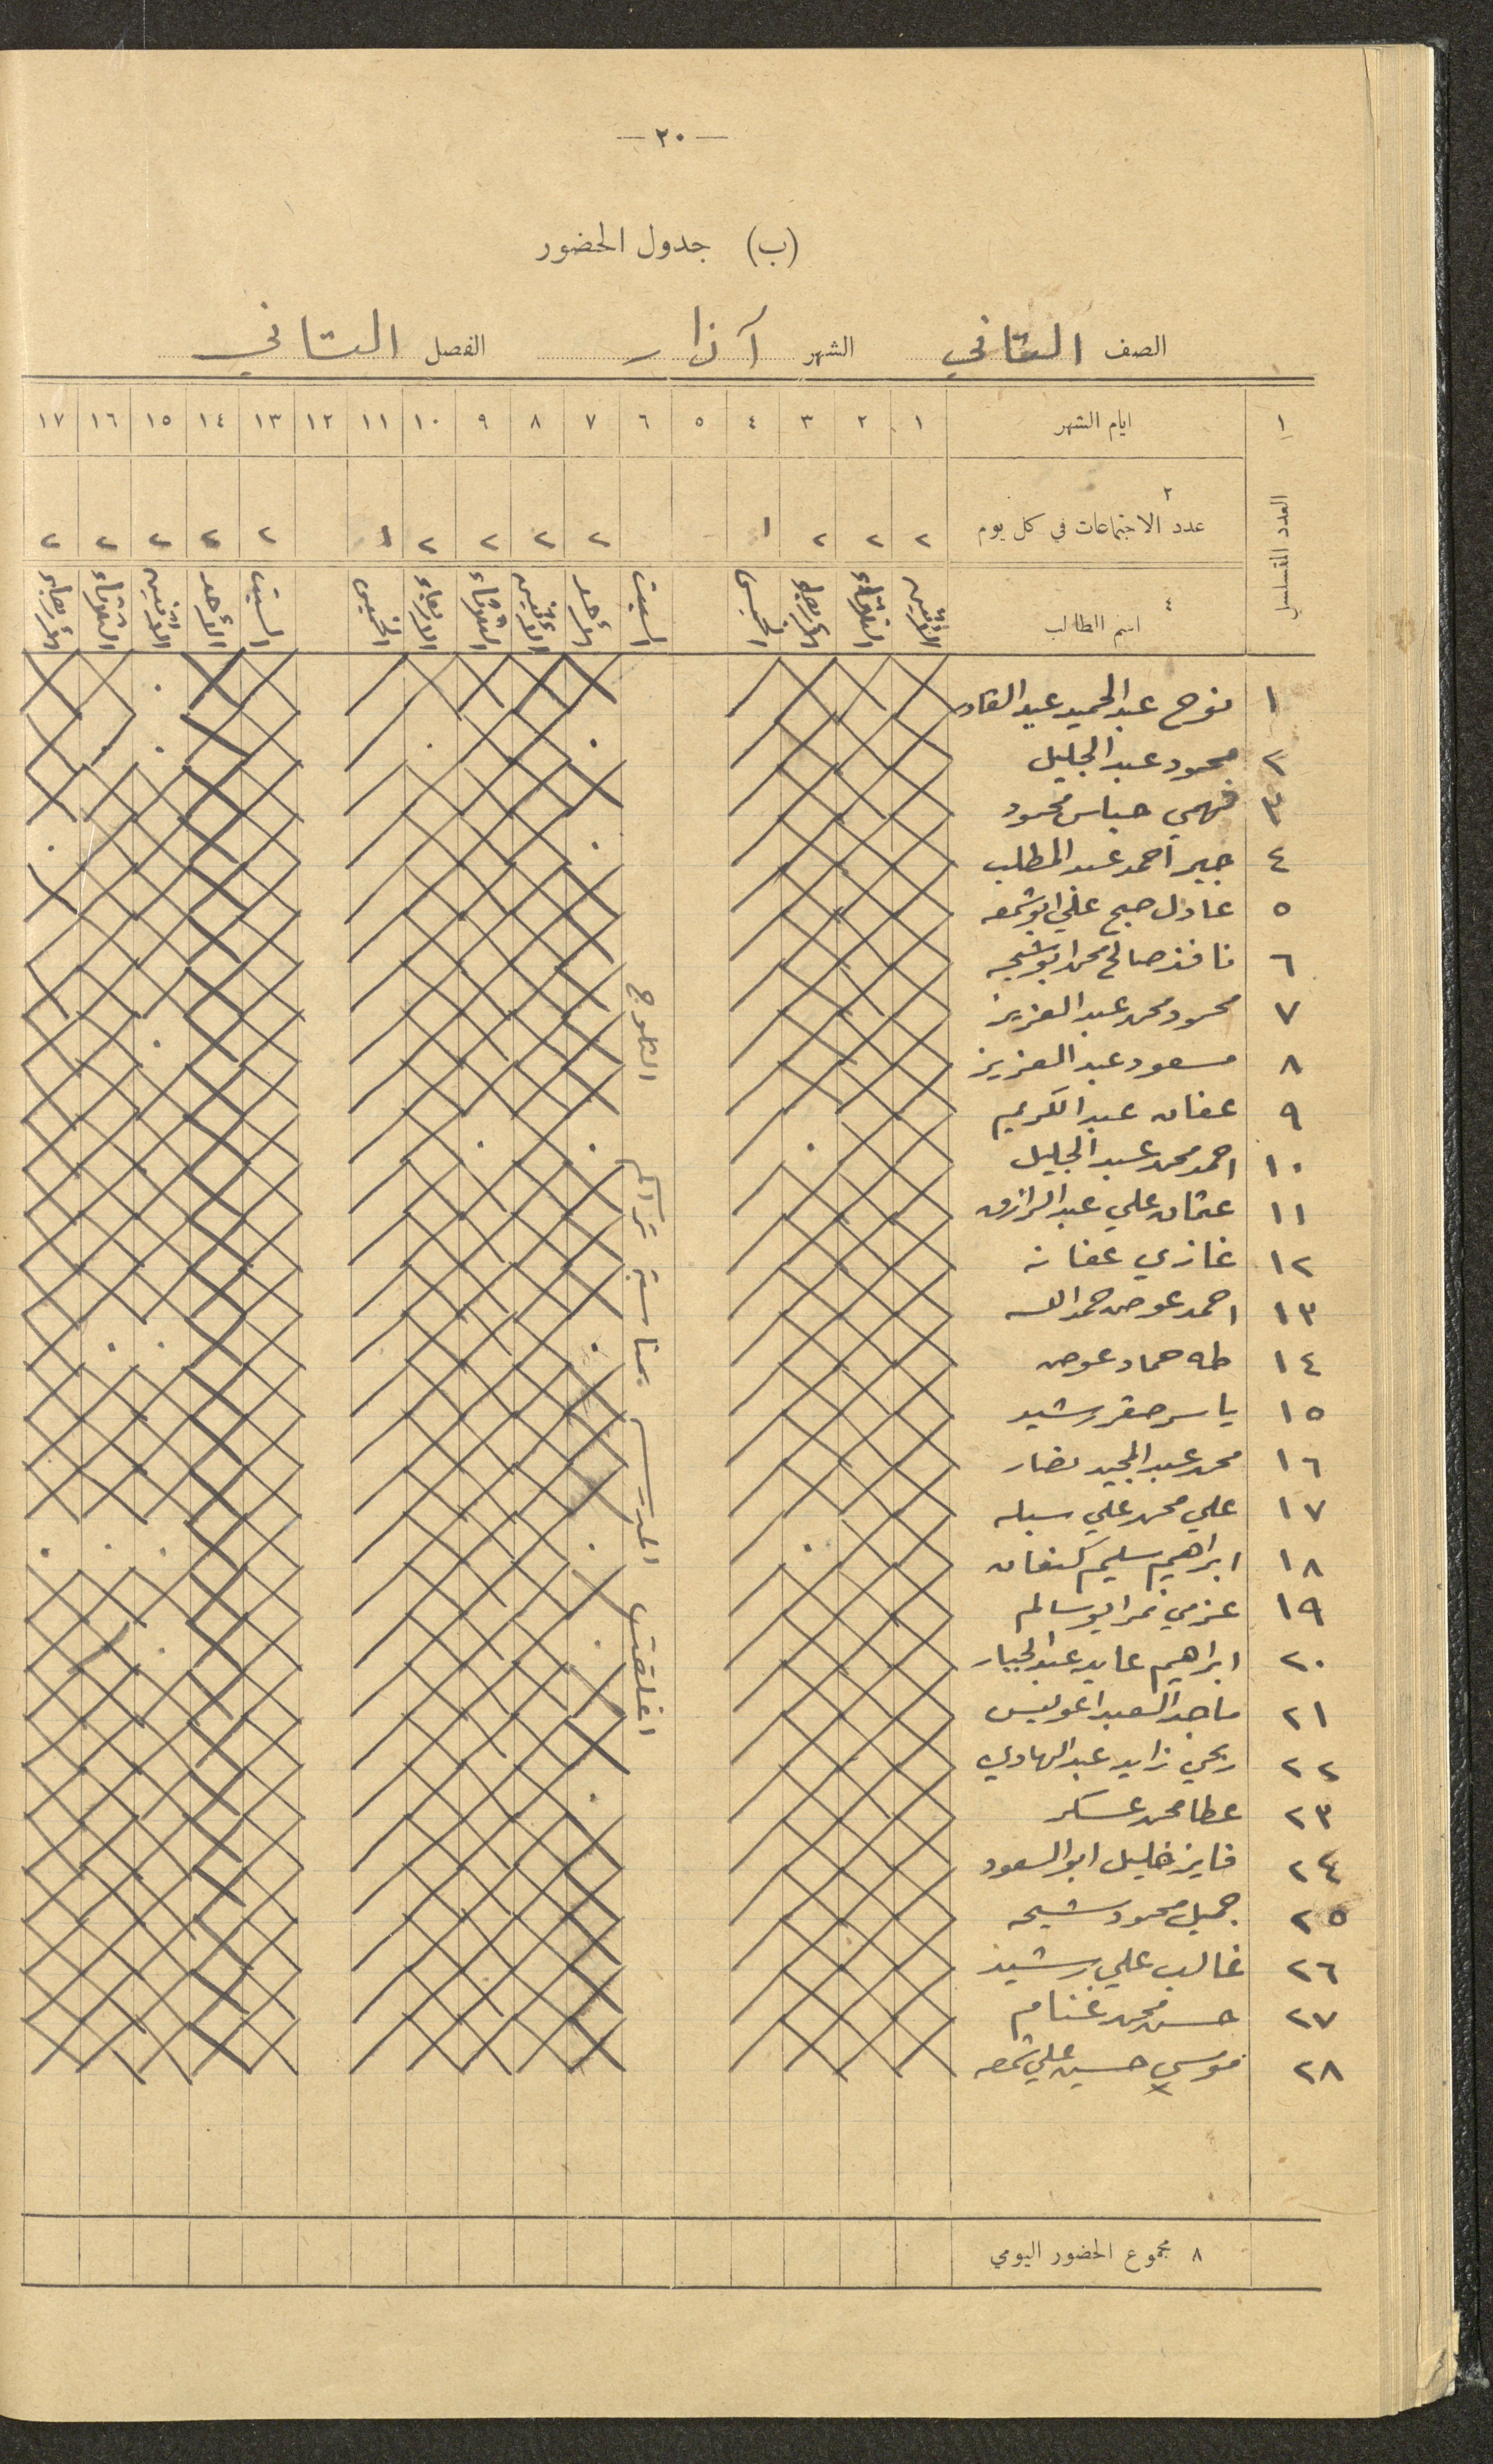 — ٢٠ —
(ب) جدول الحضور
الصف الثاني الشهر آذار الفصل الثاني
١ ايام الشهر ١ ٢ ٣ ٤ ٥ ٦ ٧ ٨ ٩ ١٠ ١١ ١٢ ١٣ ١٤ ١٥ ١٦ ١٧
العدد المتسلسل
٢ عدد الاجتماعات في كل يوم ٢ ٢ ٢ ١ ٢ ٢ ٢ ٢ ١ ٢ ٢ ٢ ٢ ٢
٤ اسم الطالب الاثنين الثلاثاء الأربعاء الخميس السبت الأحد الأثنين الثلاثاء الاربعاء الخميس السبت الأحد الاثنين الثلاثاء الأربعاء
١ نوح عبد الحميد عبد القادر
٢ محمود عبد الجليل
٣ فهمي عباس محمود
٤ جبر احمد عبد المطلب
٥ عادل صبح علي ابو شمعه
٦ نافذ صالح محمد ابو شيحه
٧ محمود محمد عبد العزيز
٨ مسعود عبد العزيز
٩ عفان عبد الكريم
١٠ احمد محمد عبد الجليل
١١ عثمان علي عبد الرازق
١٢ غازي عفانه
١٣ احمد عوض حمد الله
١٤ طه حماد عوض
١٥ ياسر صقر رشيد
١٦ محمد عبد المجيد نصار
١٧ علي محمد علي
١٨ ابراهيم سليم كنعان
١٩ عزمي نمر ابو سالم
٢٠ ابراهيم عايد عبد الجبار
٢١ ماجد السعيد
٢٢ ربحي زايد عبد الهادي
٢٣ عطا محمد عسكر
٢٤ فايز خليل ابو السعود
٢٥ جميل محمود شيحه
٢٦ غالب علي رشيد
٢٧ حسن محمد غنام
٢٨ موسى حسين علي شمعه
اغلقت المدرسة بمناسبة تراكم الثلوج
٨ مجموع الحضور اليومي